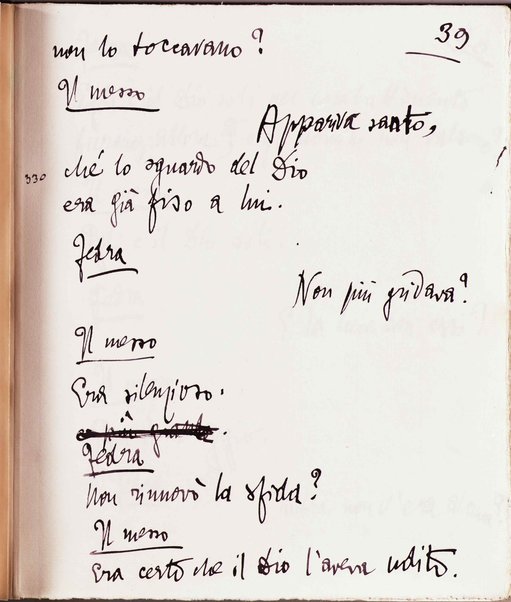 39
non lo toccavano?
Il messo
Appariva santo,
330 ché lo sguardo del Dio
era già fiso a lui.
Fedra
Non più gridava?
Il messo
Era silenzioso.
e più grande.
Fedra
Non rinnovò la sfida?
Il messo
Era certo che il Dio l'aveva udito.